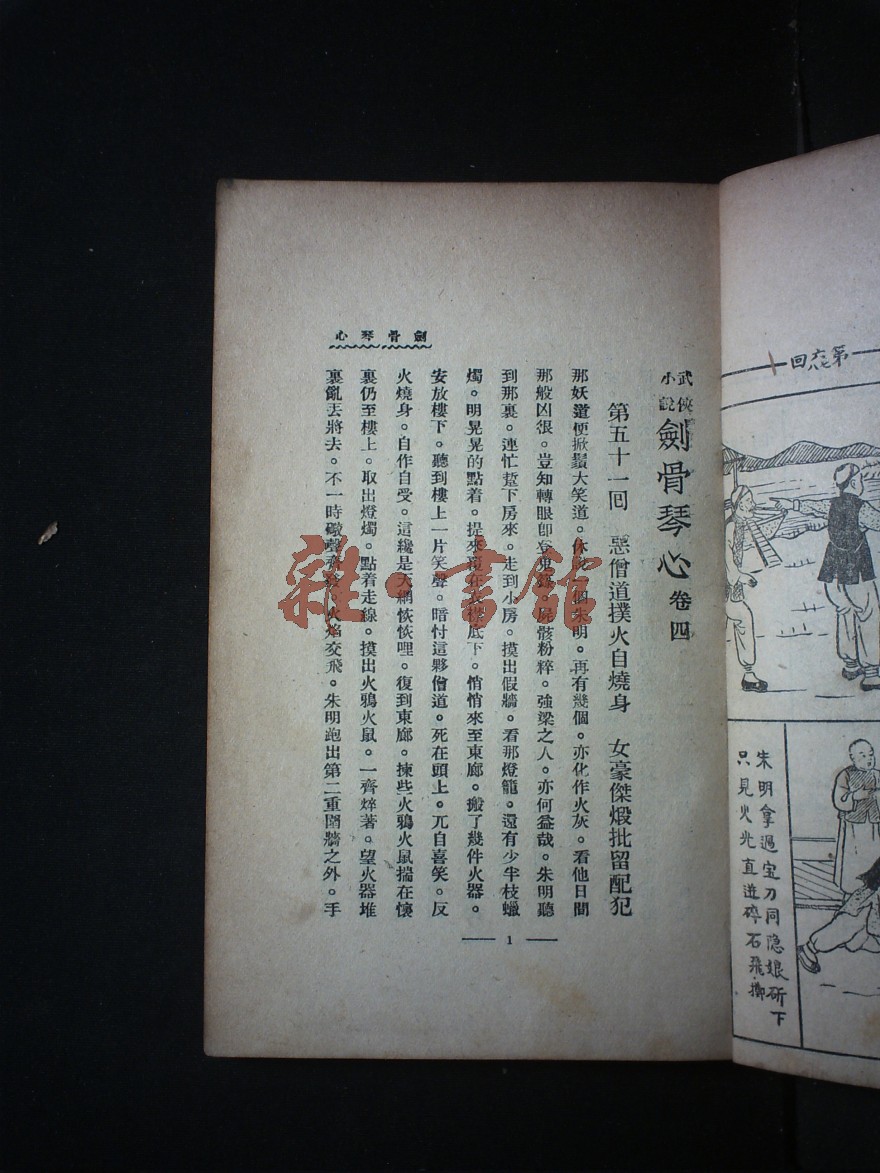 第六八回
朱明拿過宝刀同隐娘斫下
只見火光直迸碎石飛擲
武俠小說
劍骨琴心 卷四
第五十一回 惡僧道撲火自燒身 女豪傑煅批留配犯
那妖道便掀鬚大笑道。休說一個朱明。再有幾個。亦化作火灰。看他日間
那般凶很。豈知轉眼卽登鬼籙。屍骸粉粹。強梁之人。亦何益哉。朱明聽
到那裏。連忙踅下房來。走到小房。摸出假牆。看那燈籠。還有少半枝蠟
燭。明晃晃的點着。提來 在 樓底下。悄悄來至東廊。搬了幾件火器。
安放樓下。聽到樓上一片笑聲。暗忖這夥僧道。死在頭上。兀自喜笑。反
火燒身。自作自受。這纔是天網恢恢哩。復到東廊。揀些火鴉火鼠揣在懷
裏仍至樓上。取出燈燭。點着走線。摸出火鴉火鼠。一齊焠著。望火器堆
裏亂丟將去。不一時礮聲齊發。火焰交飛。朱明跑出第二重圍牆之外。手
劍骨琴心
1
雜·書館